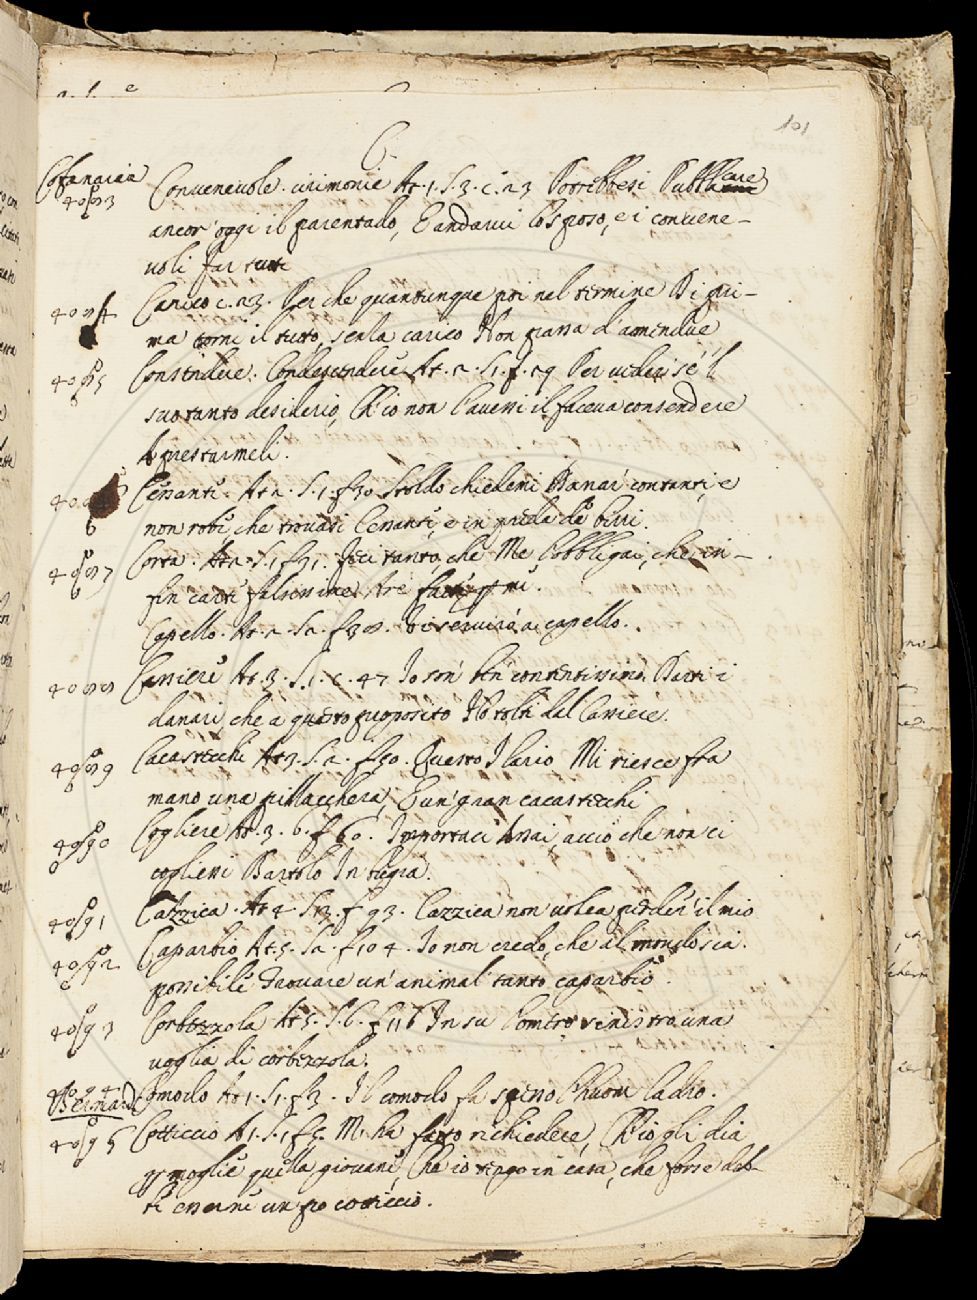 101
C
Cofanaria Convenevole. cirimonie At. 1. S. 3. c. 23 Potrebbesi Pubblicare
4083 ancor' oggi il parentado, E andarvi lo sposo, e i convene-
voli far tutti
4084 Carico c. 23. Per che quantunque poi nel termine Di pri-
ma torni il tutto, senza carico Non fia d'amendue
4085 Consendere. Condescendere At. 2. S. 1. f. 29 Per veder se'l
suo tanto desiderio, Ch'io non l'avessi il faceva consendere
A prestarmeli.
408 Cessanti. At 2. S. 1. f 30 Stoldo chiedeni Danar' contanti, e
6 non robe che trovati Cessanti, e in preda de birri.
4087 Corta. At 2. S. 1 f 31. Feci tanto, che Me l'obbligai, che in-
fin carte falsissime Are'
Capello. At. 2. Sa. f 38. Vi servirò a capello.
4088 Carniere At. 3. S. 1. c. 47 Io son' ben contentissimo Darti i
danari, che a questo proposito Ho tolti dal Carniere.
4089 Cacastecchi At 3. S. a. f 50. Questo Ilario Mi riesce fra
mano una pillacchera, E un' gran cacastecchi
4090 Cogliere At. 3. 6. f 60. Importaci Assai, acciò che non ci
coglieni Bartolo In fregra.
4091 Cazzica. At 4 S. 13. f 93. Cazzica non volea perder' il mio
4092 Caparbio At. 5. Sa. f 104. Io non credo, che al mondo sia.
possibile Trovare un' animal tanto caparbio.
4093 Corbezzola At 5. S. 6. f 116 In su l'omero sinistro una
voglia di corbezzola.
4094. Comodo At 1. S. 1. f 3. Il comodo fa spesso l'huom ladro.
Bernard
4095 Cotticcio A 1. S. 1 f 5. M'ha fatto richiedere, Ch'io gli dia
p moglie quella giovane, Che io tengo in casa, che forse deb-
be essersi un po cotticcio.